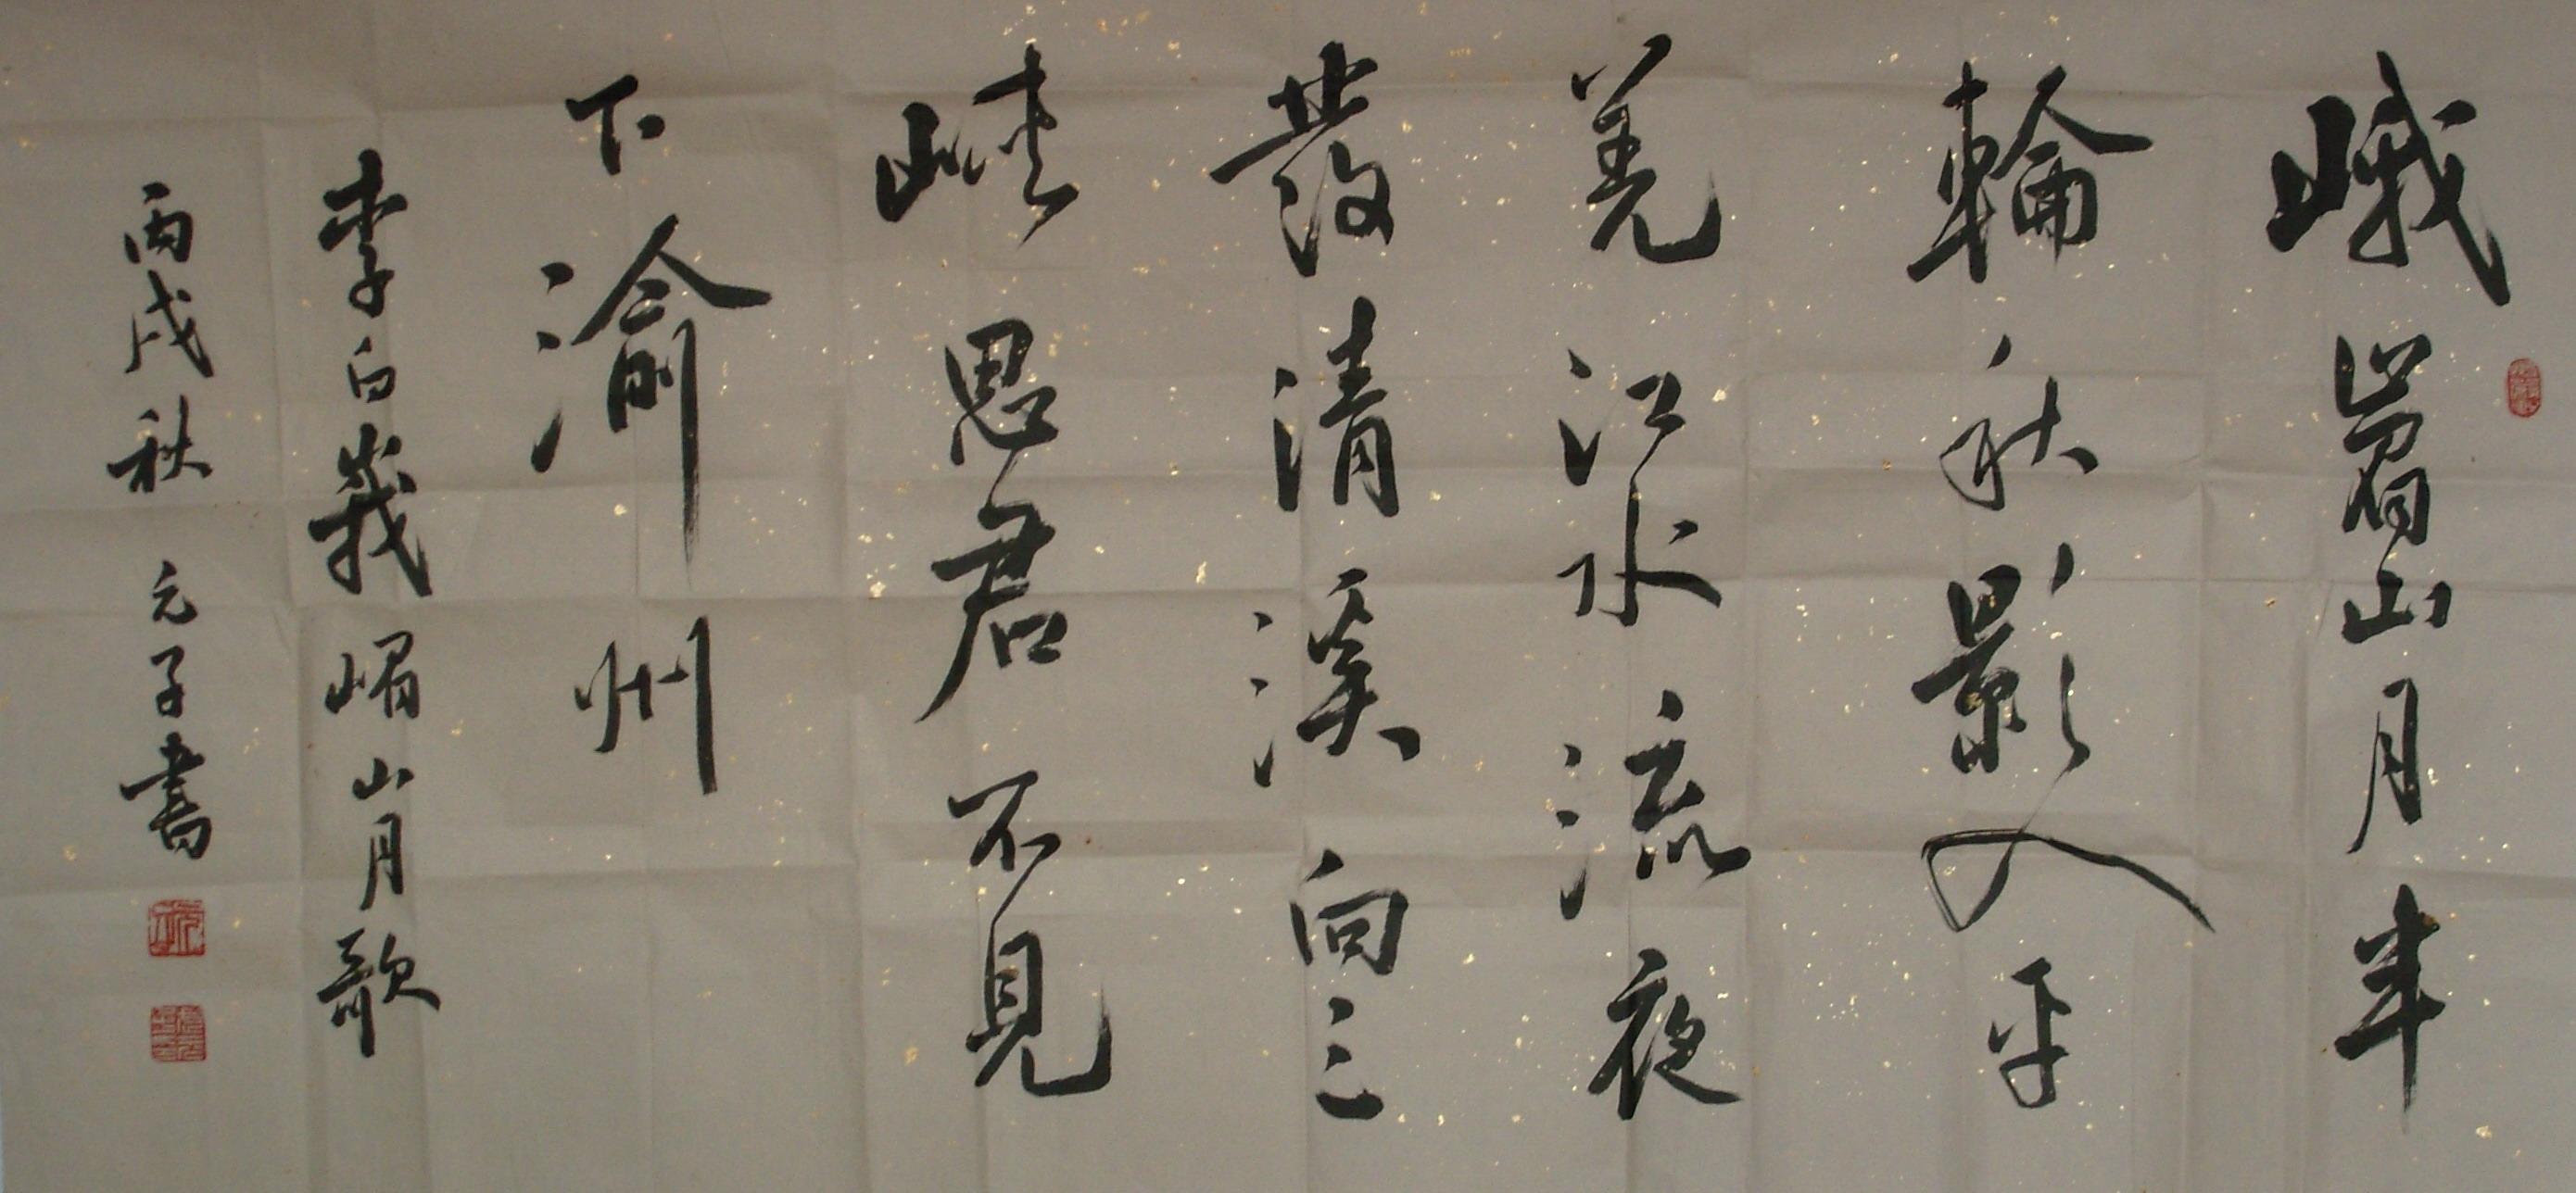 峨嵋山月半
輪秋影入平
羌江水流夜
發清溪向三
峽思君不見
下渝州
李白峩嵋山月歌
丙戌秋 元子書